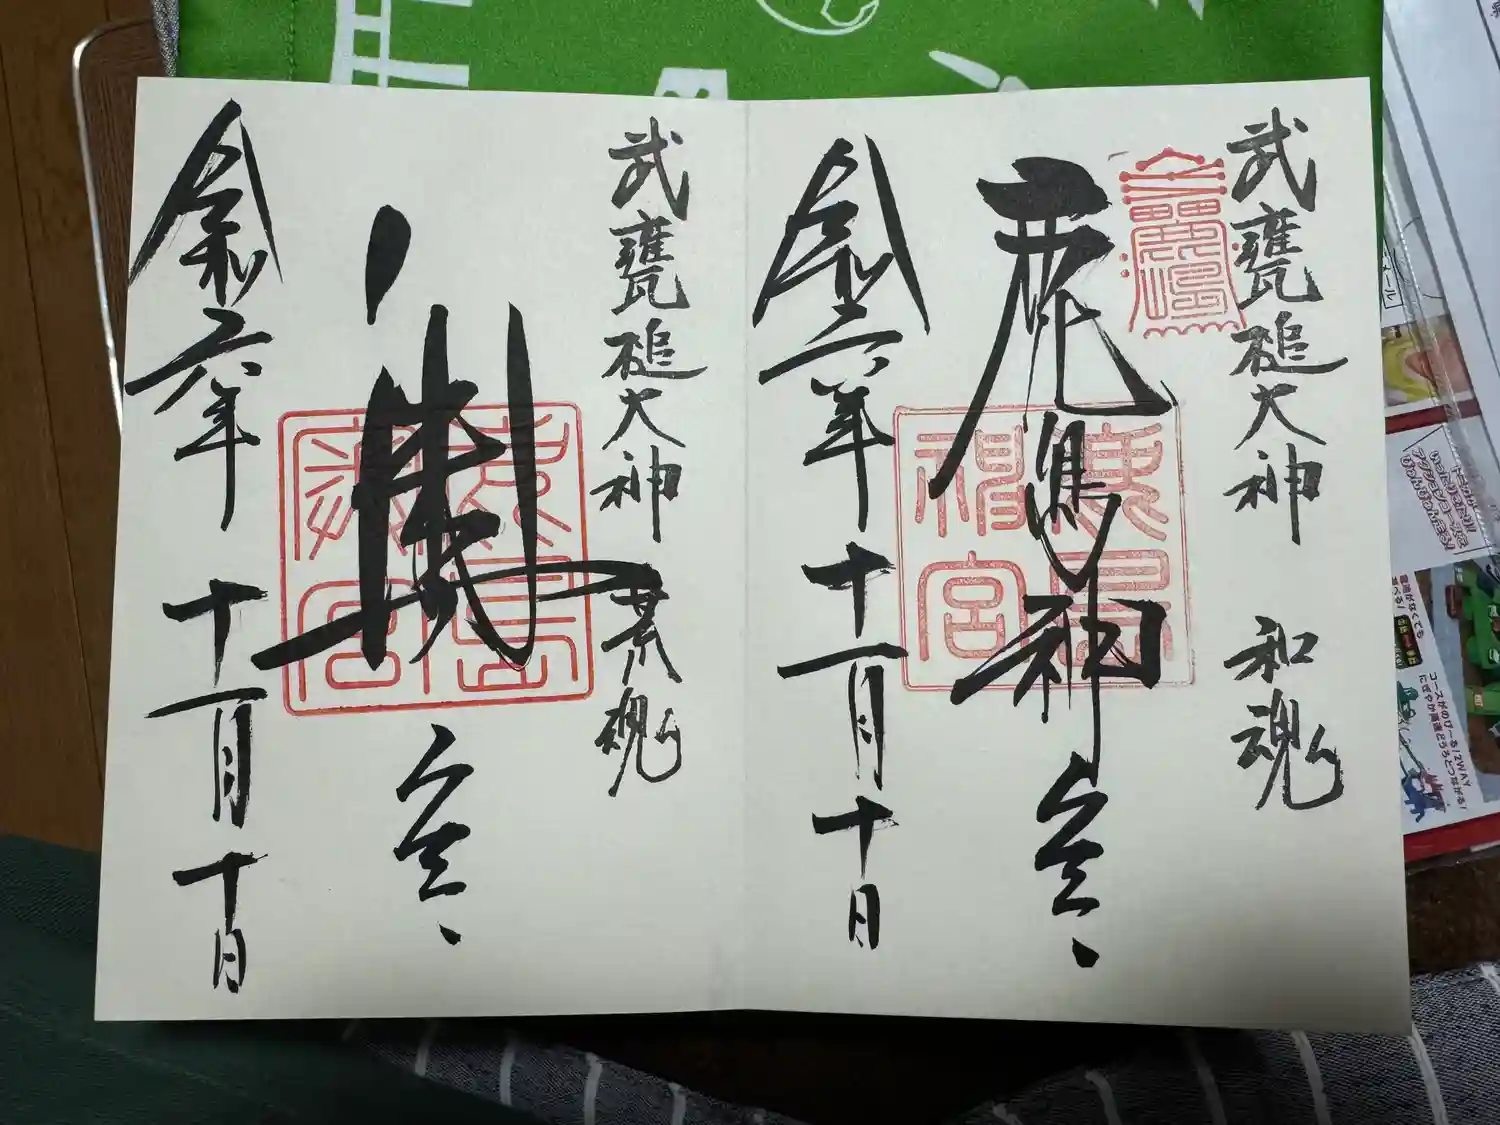 武甕槌大神　和魂
鹿島神宮
鹿島神宮
令和六年十一月十日
武甕槌大神　荒魂
奥宮
令和六年十一月十日
コースがのび〜る!2WAY